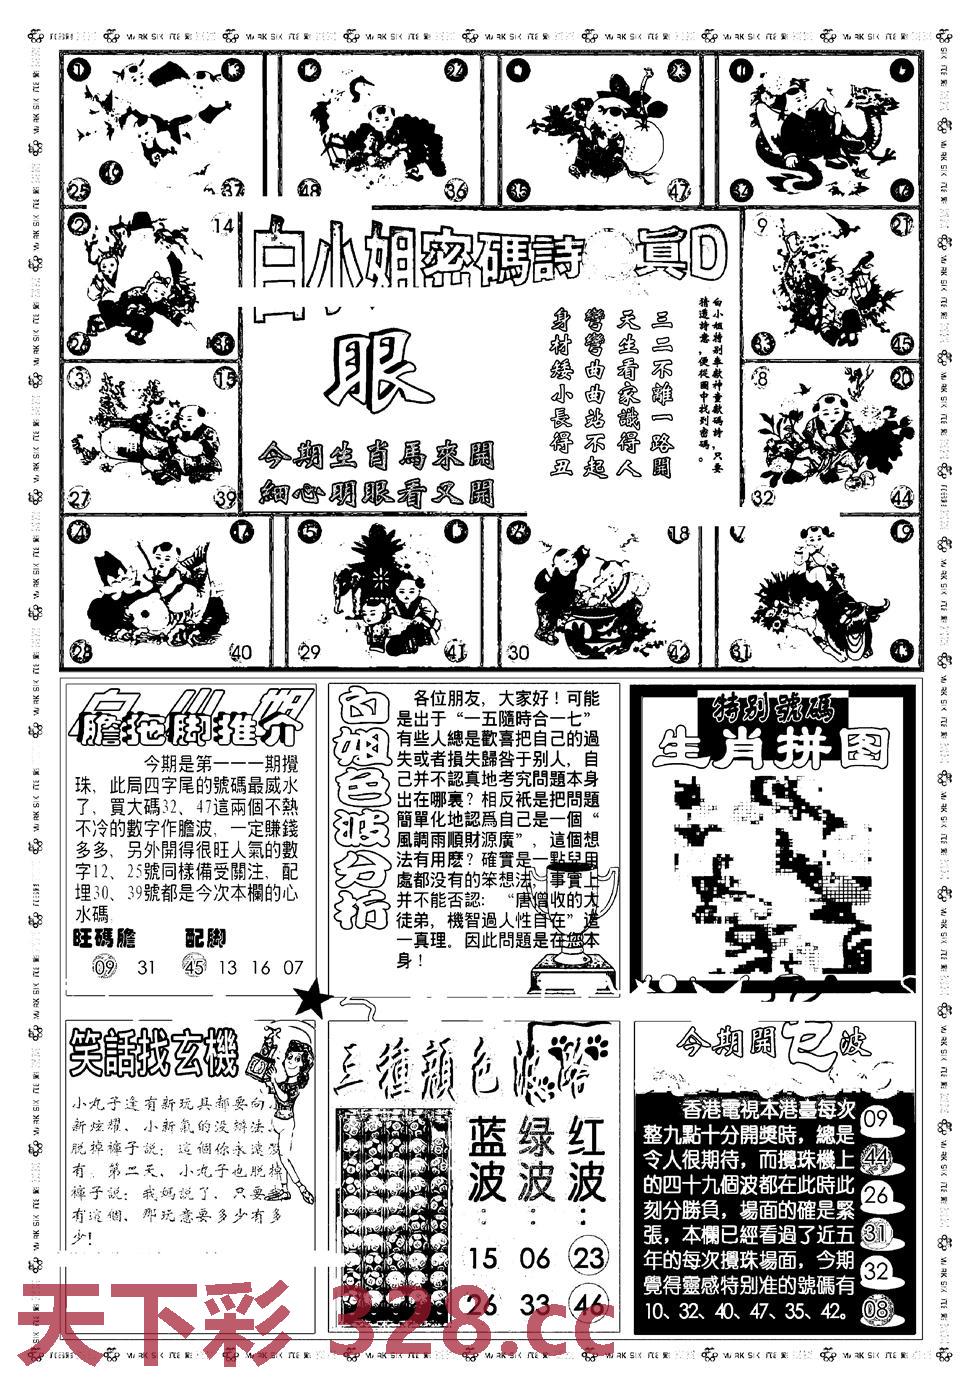 25 37
48 36
35 47
2 14
白小姐密碼詩 真D
白小姐特别奉獻神童猷碼詩，只要
猜透詩意，便從圖中找到密碼。
三二不離一路開
天生看家識得人
彎彎曲曲站不起
身材矮小長得丑
眼
今期生肖馬來開
細心明眼看又開
9 21
33 45
3 15
27 39
8 20
32 44
28 40
5
29 41
18
30 42
7 19
31
白小姐
膽拖脚推介
今期是第一一一期攪
珠，此局四字尾的號碼最威水
了，買大碼32、47這兩個不熱
不冷的數字作膽波，一定賺錢
多多，另外開得很旺人氣的數
字12、25號同樣備受關注，配
埋30、39號都是今次本欄的心
水碼
旺碼膽 配脚
09 31 45 13 16 07
白姐色波分析
各位朋友，大家好！可能
是出于“一五隨時合一七”
有些人總是歡喜把自己的過
失或者損失歸咎于别人，自
己并不認真地考究問題本身
出在哪裏？相反衹是把問題
簡單化地認爲自己是一個“
風調雨順財源廣”，這個想
法有用麽？確實是一點兒用
處都没有的笨想法，事實上
并不能否認：“唐僧收的大
徒弟，機智過人性自在”這
一真理。因此問題是在您本
身！
特别號碼
生肖拼图
笑話找玄機
小丸子逢有新玩具都要向
新炫耀、小新氣的没辦法、
脱掉褲子説：這個你永遠没
有、第二天、小丸子也脱掉
褲子説：我媽説了、只要
有這個、那玩意要多少有多
少！
三種顔色波路
蓝波： 绿波： 红波：
15 06 23
26 33 46
今期開 波
香港電視本港臺每次
整九點十分開獎時，總是
令人很期待，而攪珠機上
的四十九個波都在此時此
刻分勝負，場面的確是緊
張，本欄已經看過了近五
年的每次攪珠場面，今期
覺得靈感特别准的號碼有
10、32、40、47、35、42。
09
44
26
31
32
08
天下彩 328.cc